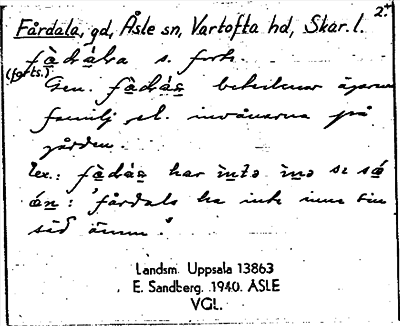 2.
Fårdala, gd, Åsle sn, Vartofta hd, Skar. l.
s. forts.
(forts.)
Gen. betecknar ägarens
familj el. invånarna på
gården.
Ex.: har
: 'fårdals ha inte inne sin
säd ännu.'
Landsm. Uppsala 13863
E. Sandberg. 1940. ÅSLE
VGL.